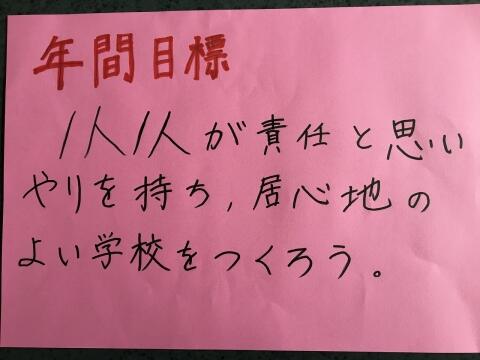 年間目標
1人1人が責任と思い
やりを持ち,居心地の
よい学校をつくろう。